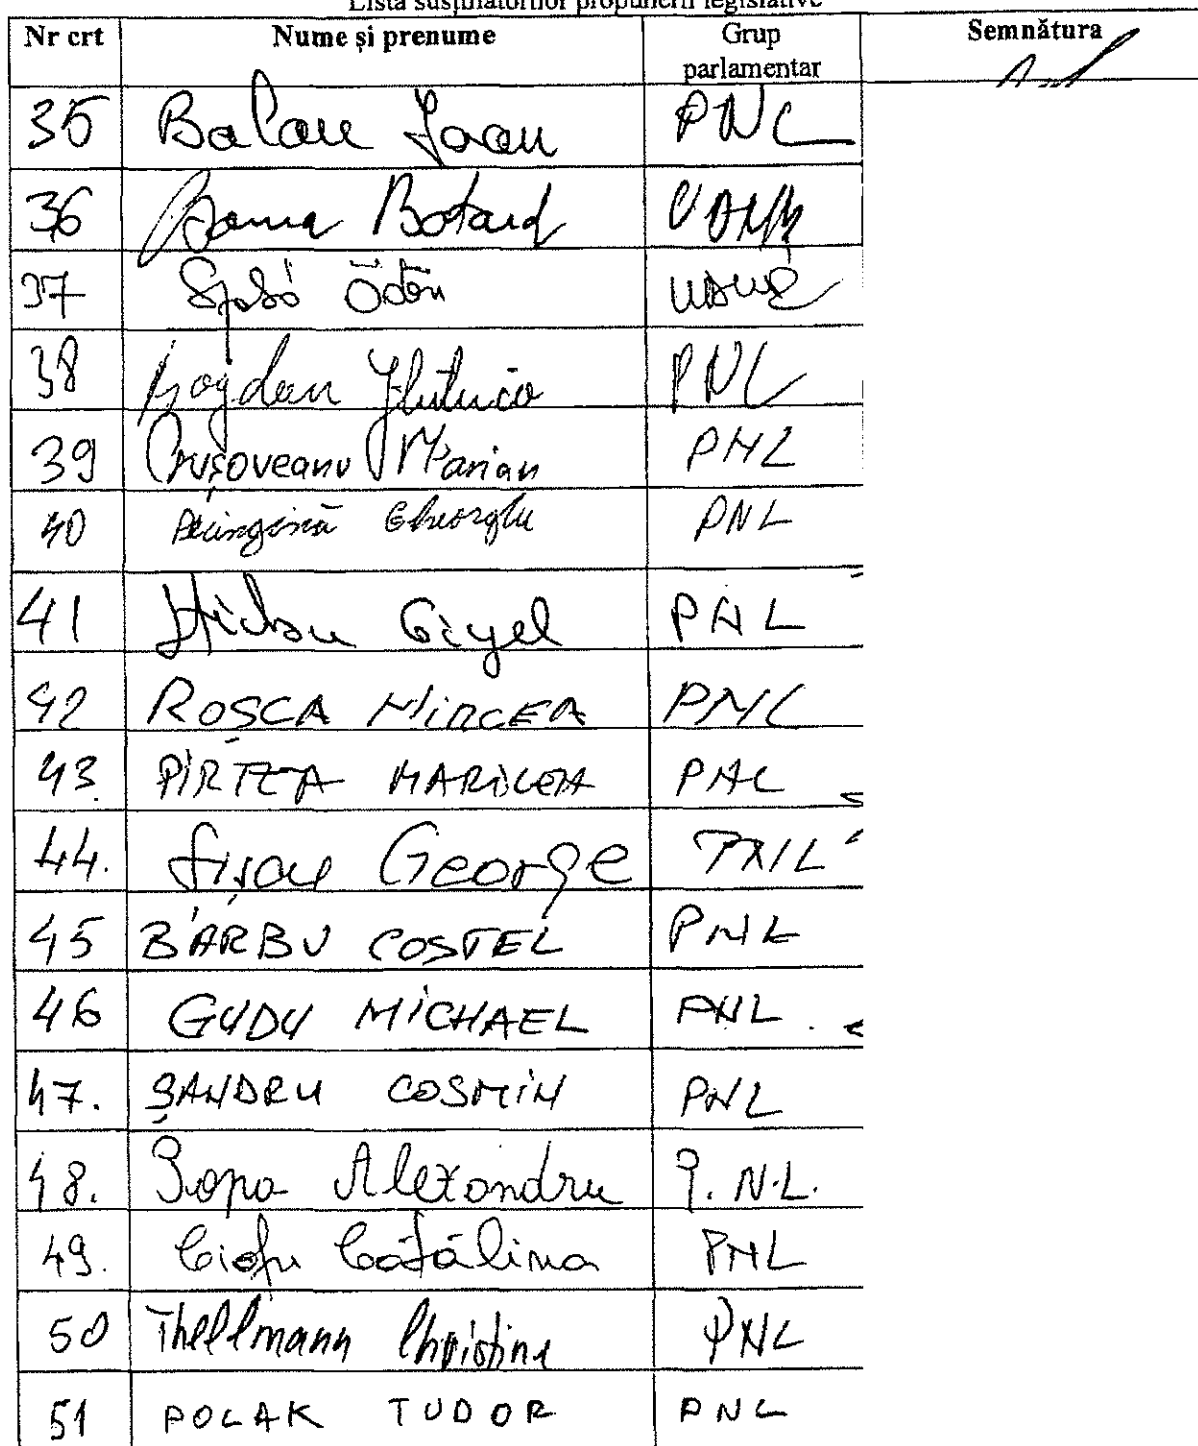 Lista susținătorilor propunerii legislative
Nr crt Nume și prenume Grup parlamentar Semnătura
35 Balan Ioan PNL
36 Botond UDMR
37 Szabó Ödön UDMR
38 Bogdan PNL
39 Crușoveanu Marian PNL
40 Pecingină Gheorghe PNL
41 Știrbu Gigel PNL
42 ROȘCA MIRCEA PNL
43. PIRTEA MARILENA PNL
44. Șișcu George PNL
45 BARBU COSTEL PNL
46 GUDU MICHAEL PNL
47. ȘANDRU COSMIN PNL
48. Popa Alexandru P.N.L.
49. Ciofu Cătălina PNL
50 Thellmann Christine PNL
51 POLAK TUDOR PNL